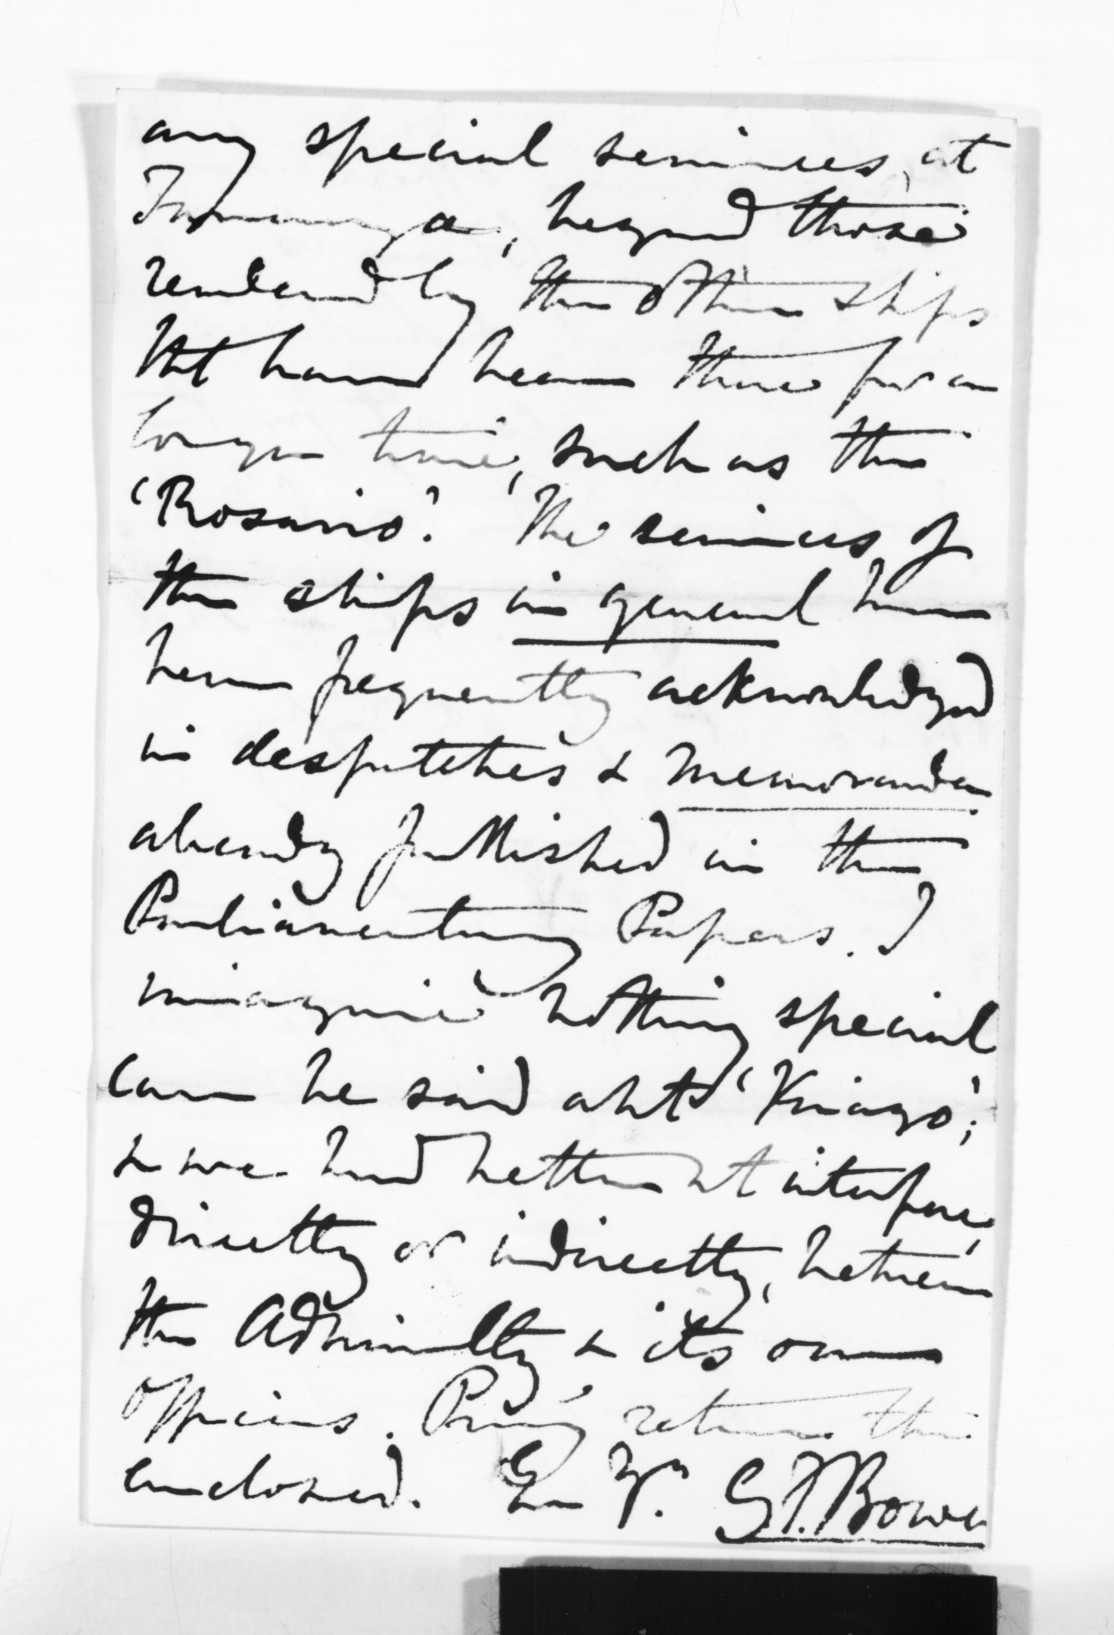 any special services, at
Tauranga, beyond those
rendered by the other ships
tht have been there for a
longer time, such as the
'Rosario'. The services of
the ships in general have
been frequently acknowledged
in despatches & Memoranda
already published in the
Parliamentary Papers. I
imagine nothing special
can be said abt
& we had better nt interfere,
directly or indirectly, between
the Admiralty & its own
officers. Pray return the
enclosed. Ev Yrs. G.F. Bowen